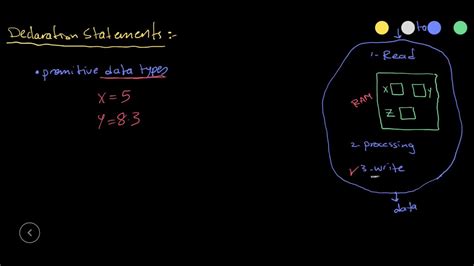 Declaration Statements:-
• primitive data types
x = 5
y = 8.3
to
1- Read
RAM
X
Y
Z
2- processing
✓ 3- write
data